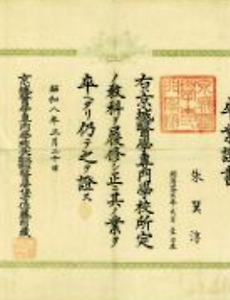 卒業證書
朱
淳
右京城醫學專門學校所定
ノ教科ヲ履修シ正ニ其ノ業ヲ
卒ヘタリ仍テ之ヲ證ス
昭和八年三月二十日
京城醫學專門學校長醫學博士佐藤剛藏